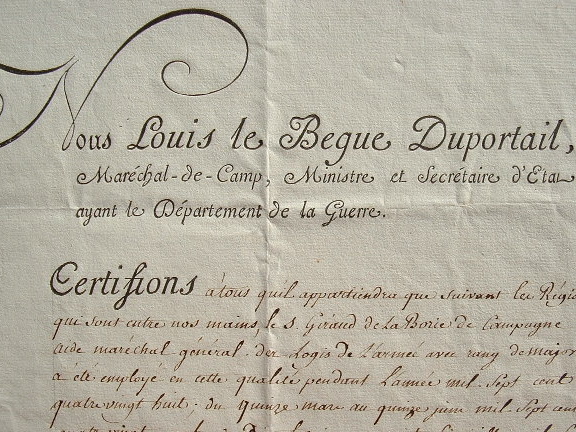 Nous Louis le Begue Duportail,
Maréchal-de-Camp, Ministre et Secrétaire d'Etat
ayant le Département de la Guerre.
Certifions à tous qu'il appartiendra que suivant les Régis
qui sont entre nos mains, le s. Giraud de la Borie de Campagne
aide maréchal général des Logis de L'armée avec rang de major
a été employé en cette qualité pendant L'année mil sept cent
quatre vingt huit; du quinze mars au quinze juin mil Sept cent